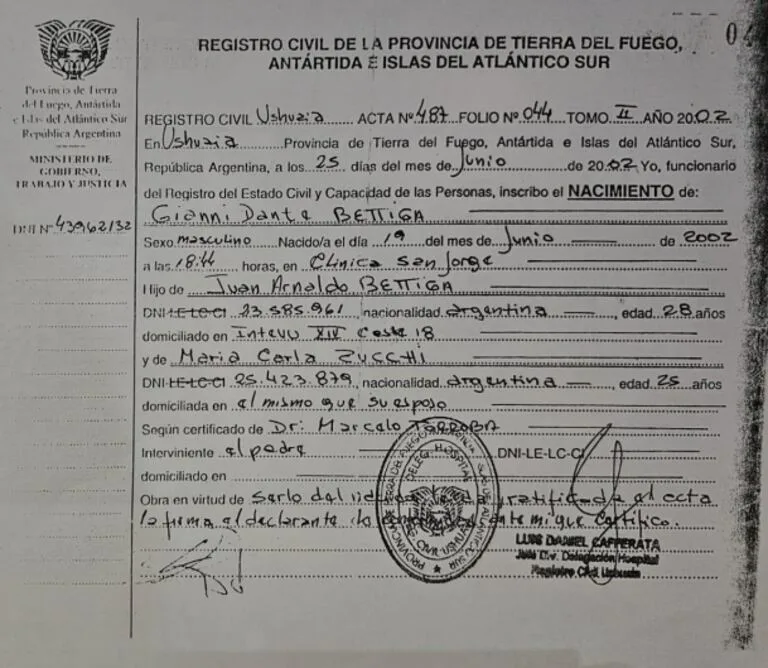 Provincia de Tierra
del Fuego, Antártida
e Islas del Atlántico Sur
República Argentina
MINISTERIO DE
GOBIERNO,
TRABAJO Y JUSTICIA
DNI Nº 43962132
REGISTRO CIVIL DE LA PROVINCIA DE TIERRA DEL FUEGO,
ANTÁRTIDA E ISLAS DEL ATLÁNTICO SUR
REGISTRO CIVIL Ushuaia ACTA Nº 487 FOLIO Nº 044 TOMO II AÑO 2002
En Ushuaia Provincia de Tierra del Fuego, Antártida e Islas del Atlántico Sur,
República Argentina, a los 25 días del mes de Junio de 2002 Yo, funcionario
del Registro del Estado Civil y Capacidad de las Personas, inscribo el NACIMIENTO de:
Gianni Dante BETTIGA
Sexo masculino Nacido/a el día 19 del mes de Junio de 2002
a las 18:44 horas, en Clinica San Jorge
Hijo de Juan Arnaldo BETTIGA
DNI-LE-LC-CI 23.585.961, nacionalidad argentina, edad 28 años
domiciliado en Intevu XIV Casa 18
y de Maria Carla ZUCCHI
DNI-LE-LC-CI 25.423.879, nacionalidad argentina, edad 25 años
domiciliada en el mismo que su esposo
Según certificado de Dr: Marcelo
Interviniente el padre DNI-LE-LC-CI
domiciliado en
Obra en virtud de serlo del ratificada el acta
la firma el declarante ante mi que certifico.
PROVINCIA DE TIERRA DEL FUEGO
DELEG. HOSPITAL
LUIS DANIEL CAFFERATA
Jefe Div. Delegación Hospital
Registro Civil Ushuaia